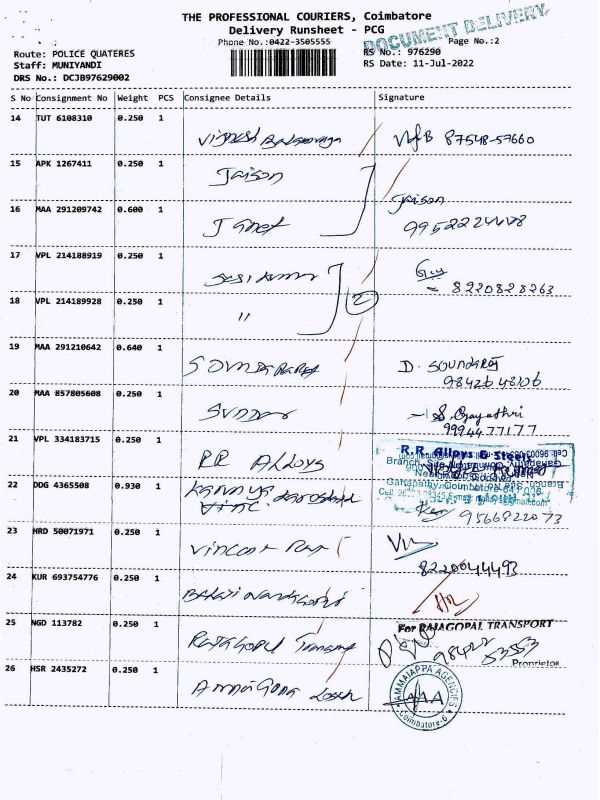 THE PROFESSIONAL COURIERS, Coimbatore
Delivery Runsheet - PCG
DOCUMENT DELIVERY
Phone No.:0422-3505555
Page No.:2
Route: POLICE QUATERES
RS No.: 976290
Staff: MUNIYANDI
RS Date: 11-Jul-2022
DRS No.: DCJB97629002
S No Consignment No Weight PCS Consignee Details Signature
14 TUT 6108310 0.250 1
87548-57660
15 APK 1267411 0.250 1 Jaison
Jaison
16 MAA 291209742 0.600 1 Janet
9952224478
17 VPL 214188919 0.250 1 Sasikumar
8220828263
18 VPL 214189928 0.250 1 "
2
19 MAA 291210642 0.640 1
D. SOUNDARAJ
9842648106
20 MAA 857805608 0.250 1 SUNDAR
S. Gayathri
9994477177
21 VPL 334183715 0.250 1 RR ALLOYS
R.R. Alloys & Steels
22 DDG 4365508 0.930 1
9566822073
23 HRD 50071971 0.250 1 Vincent Raj
8220044493
24 KUR 693754776 0.250 1
25 NGD 113782 0.250 1
For RAJAGOPAL TRANSPORT
98422 53553
Proprietor
26 HSR 2435272 0.250 1
AMMAIAPPA AGENCIES
Coimbatore-6